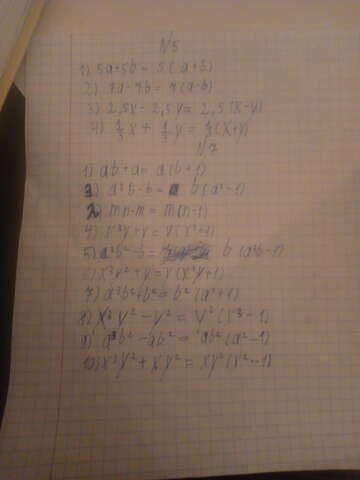 N5
1) 5a+5b = 5(a+b)
2) 7a-7b = 7(a-b)
3) 2,5x - 2,5y = 2,5(x-y)
4) 1/3 x + 1/3 y = 1/3 (x+y)
N7
1) ab+a = a(b+1)
3) a²b-b = b(a²-1)
2) mn-m = m(n-1)
4) x³y+y = y(x³+1)
5) a³b²-b = b(a³b-1)
6) x³y²+y = y(x³y+1)
7) a³b²+b² = b²(a³+1)
8) x³y²-y² = y²(x³-1)
9) a³b²-ab² = ab²(a²-1)
10) x³y²+xy² = xy²(x²-1)